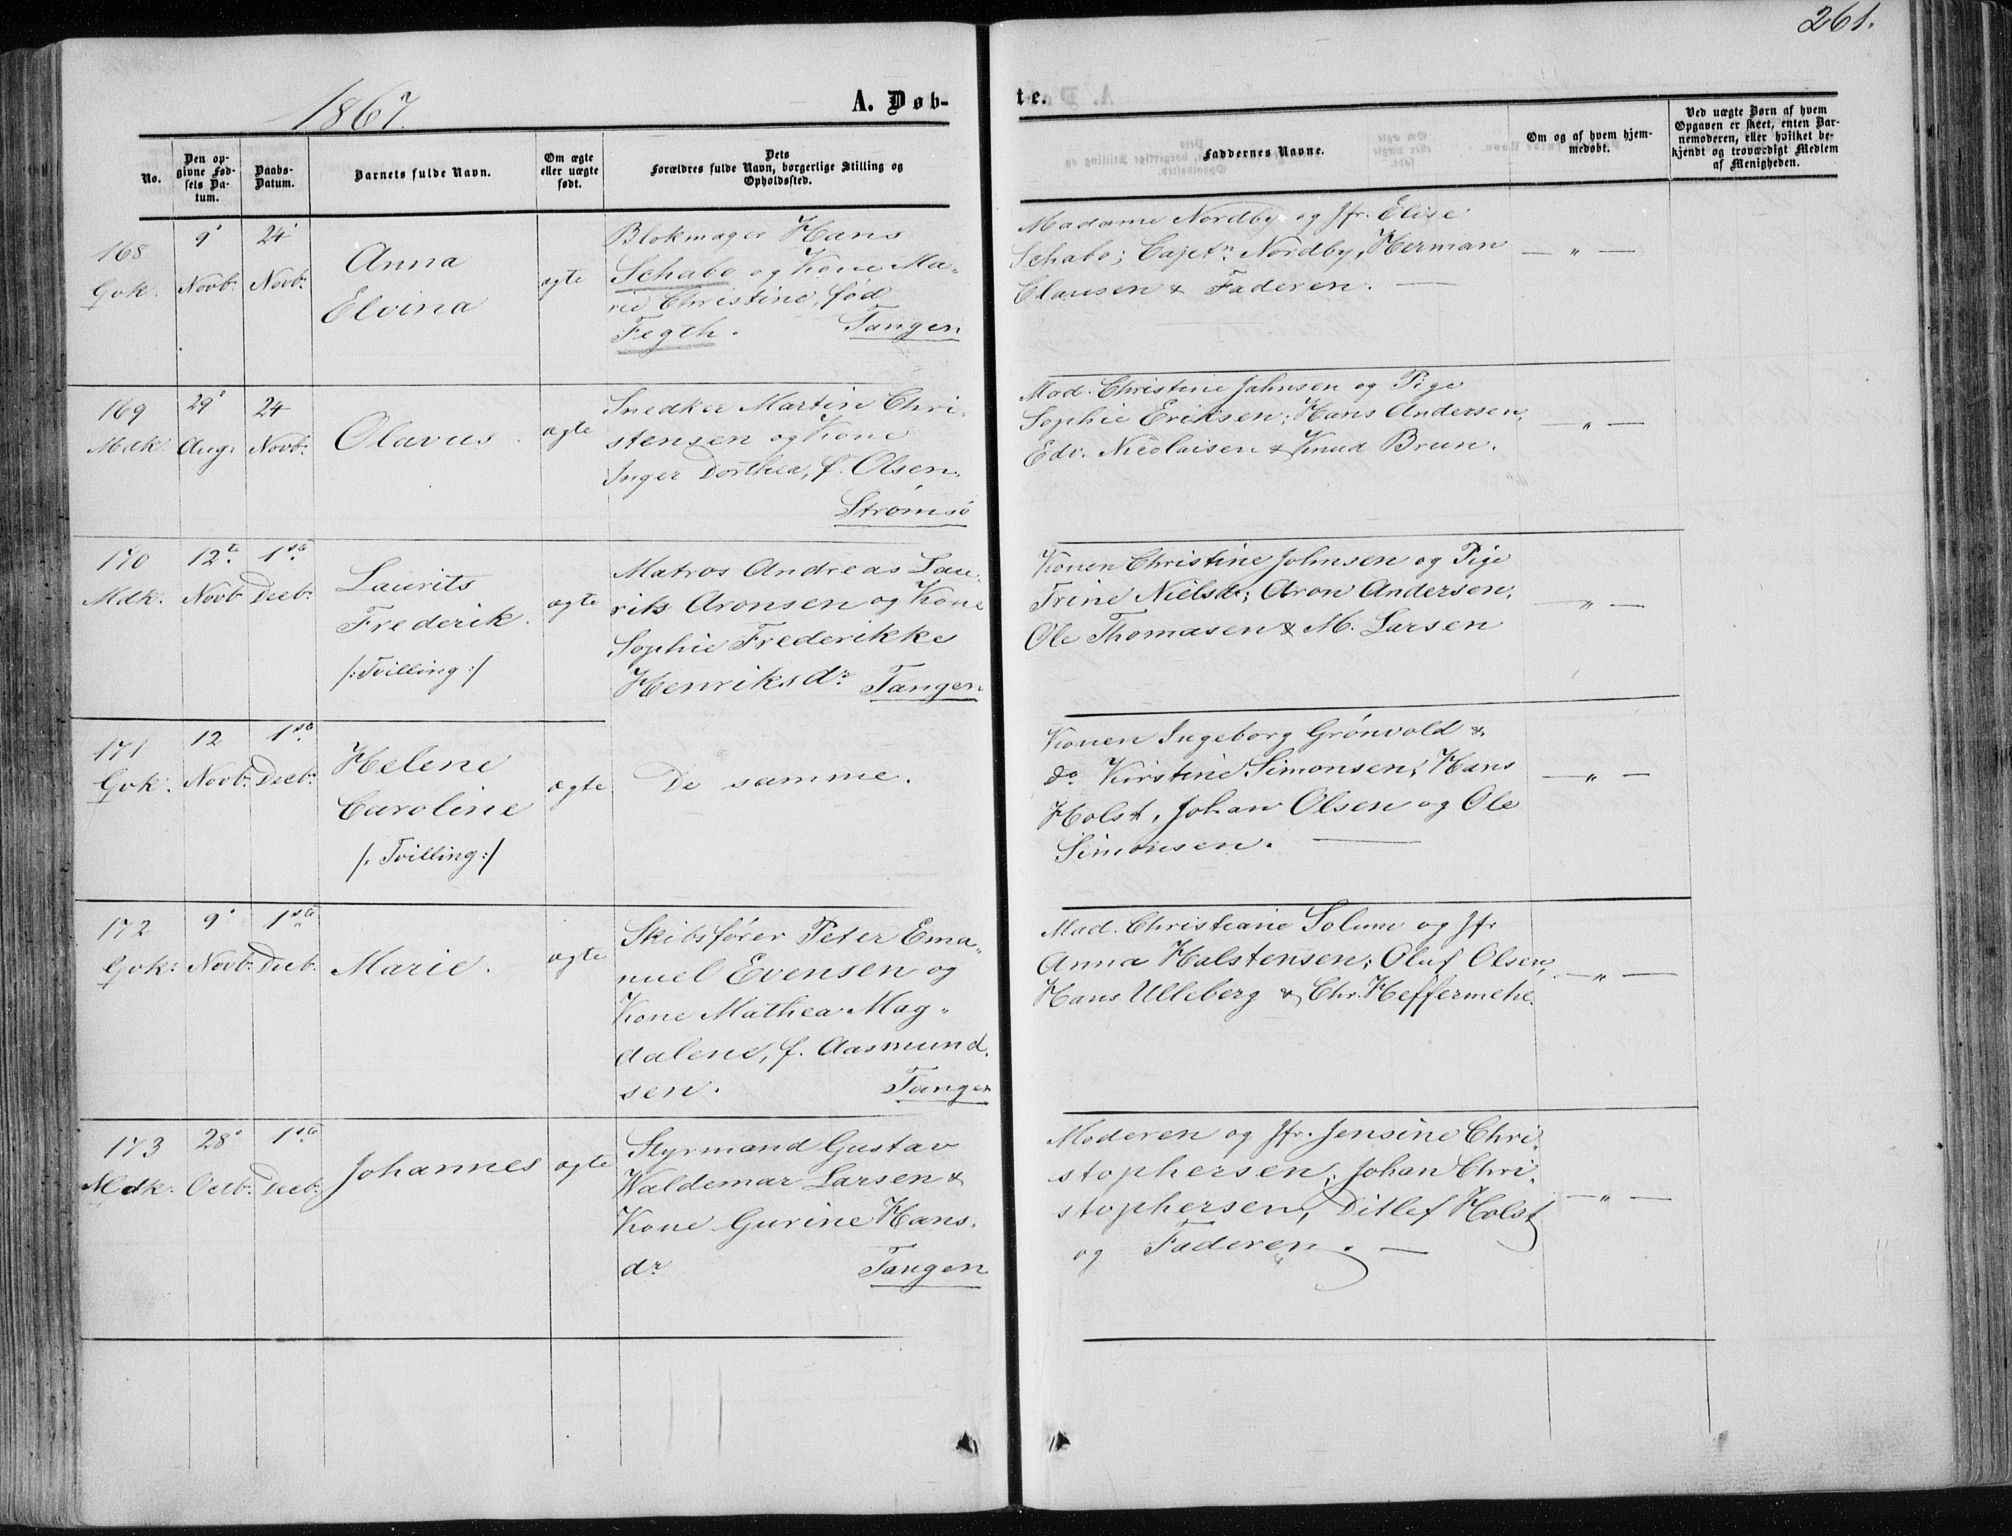 261.
1867.
A. Døb-
te.
No.
Den op-
givne Fød-
sels Da-
tum.
Daabs-
Datum.
Barnets fulde Navn.
Om ægte
eller uægte
født.
Dets
Forældres fulde Navn, borgerlige Stilling og
Opholdssted.
Faddernes Navne.
Om og af hvem hjem-
medøbt.
Ved uægte Børn af hvem
Opgaven er skeet, enten Bar-
nemoderen, eller hvilket be-
kjendt og troværdigt Medlem
af Menigheden.
168
Gvk.
9
Novb.
24
Novb.
Anna
Elvina
ægte
Blokmager Hans
Schabo og Kone Ma-
rie Christine, fød
Fegth. Tangen
Madame Nordby og Jfr. Elise
Schabo; Captn. Nordby, Herman
Clausen & Faderen. —
— „ —
169
Mdk.
29
Aug.
24
Novb.
Olavus.
ægte
Snedker Martin Chri-
stensen og Kone
Inger Dorthea, f. Olsen.
Strømsø
Mad. Christine Jahnsen og Pige
Sophie Eriksen; Hans Andersen,
Edv. Nicolaisen & Knud Brun.
— „ —
170
Mdk.
12te
Novb
1ste
Decb.
Laurits
Frederik.
/: Tvilling :/
ægte
Matros Andreas Lau-
rits Aronsen og Kone
Sophie Frederikke
Henriksdr Tangen
Konen Christine Johnsen og Pige
Trine Nielsdr; Aron Andersen,
Ole Thomasen & M. Larsen
— „ —
171
Gvk.
12
Novb.
1ste
Decb.
Helene
Caroline
/: Tvilling :/
ægte
De samme.
Konen Ingeborg Grönvold &
do Kirstine Simonsen; Hans
Holst, Johan Olsen og Ole
Simonsen. —
— „ —
172
Gvk:
9
Novb.
1ste
Decb.
Marie.
ægte
Skibsfører Peter Ema-
nuel Evensen og
Kone Mathea Mag-
dalene, f. Aasmund-
sen. Tangen
Mad. Christiane Solum og Jfr
Anna Halstensen; Oluf Olsen,
Hans Ulleberg & Chr. Heffermehl.
— „ —
173
Mdk.
28
Octb.
1ste
Decb.
Johannes
ægte
Styrmand Gustav
Waldemar Larsen &
Kone Gurine Hans-
dr Tangen
Moderen og Jfr. Jensine Chri-
stophersen; Johan Chri-
stophersen, Ditlef Holst
og Faderen. —
— „ —